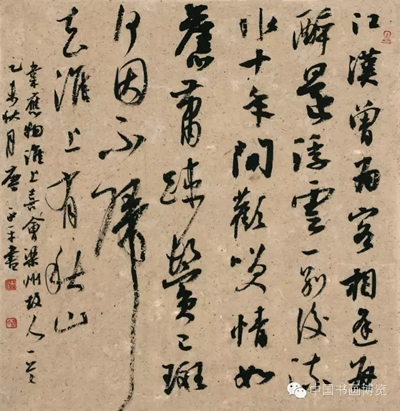 江漢曾為客相逢每
醉還浮雲一別後流
水十年間歡笑情如
舊蕭疎鬢已斑
何因不歸
去淮上有秋山
韋應物淮上喜會梁州故人一首
乙未秋月唐平書
中国书画博览